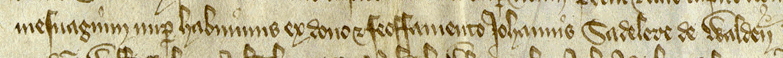 mesuagium nup habuimus ex dono & feoffamento Johannis Sadelere de Walden